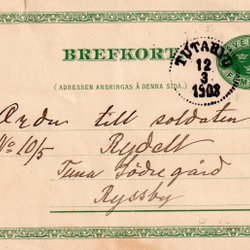 BREFKORT
(ADRESSEN ANDRINGAS Å DENNA SIDA.)
TUTARYD
12
3
1908
Order till soldaten
No 10/5 Rydell
Tuna Södregård
Ryssby